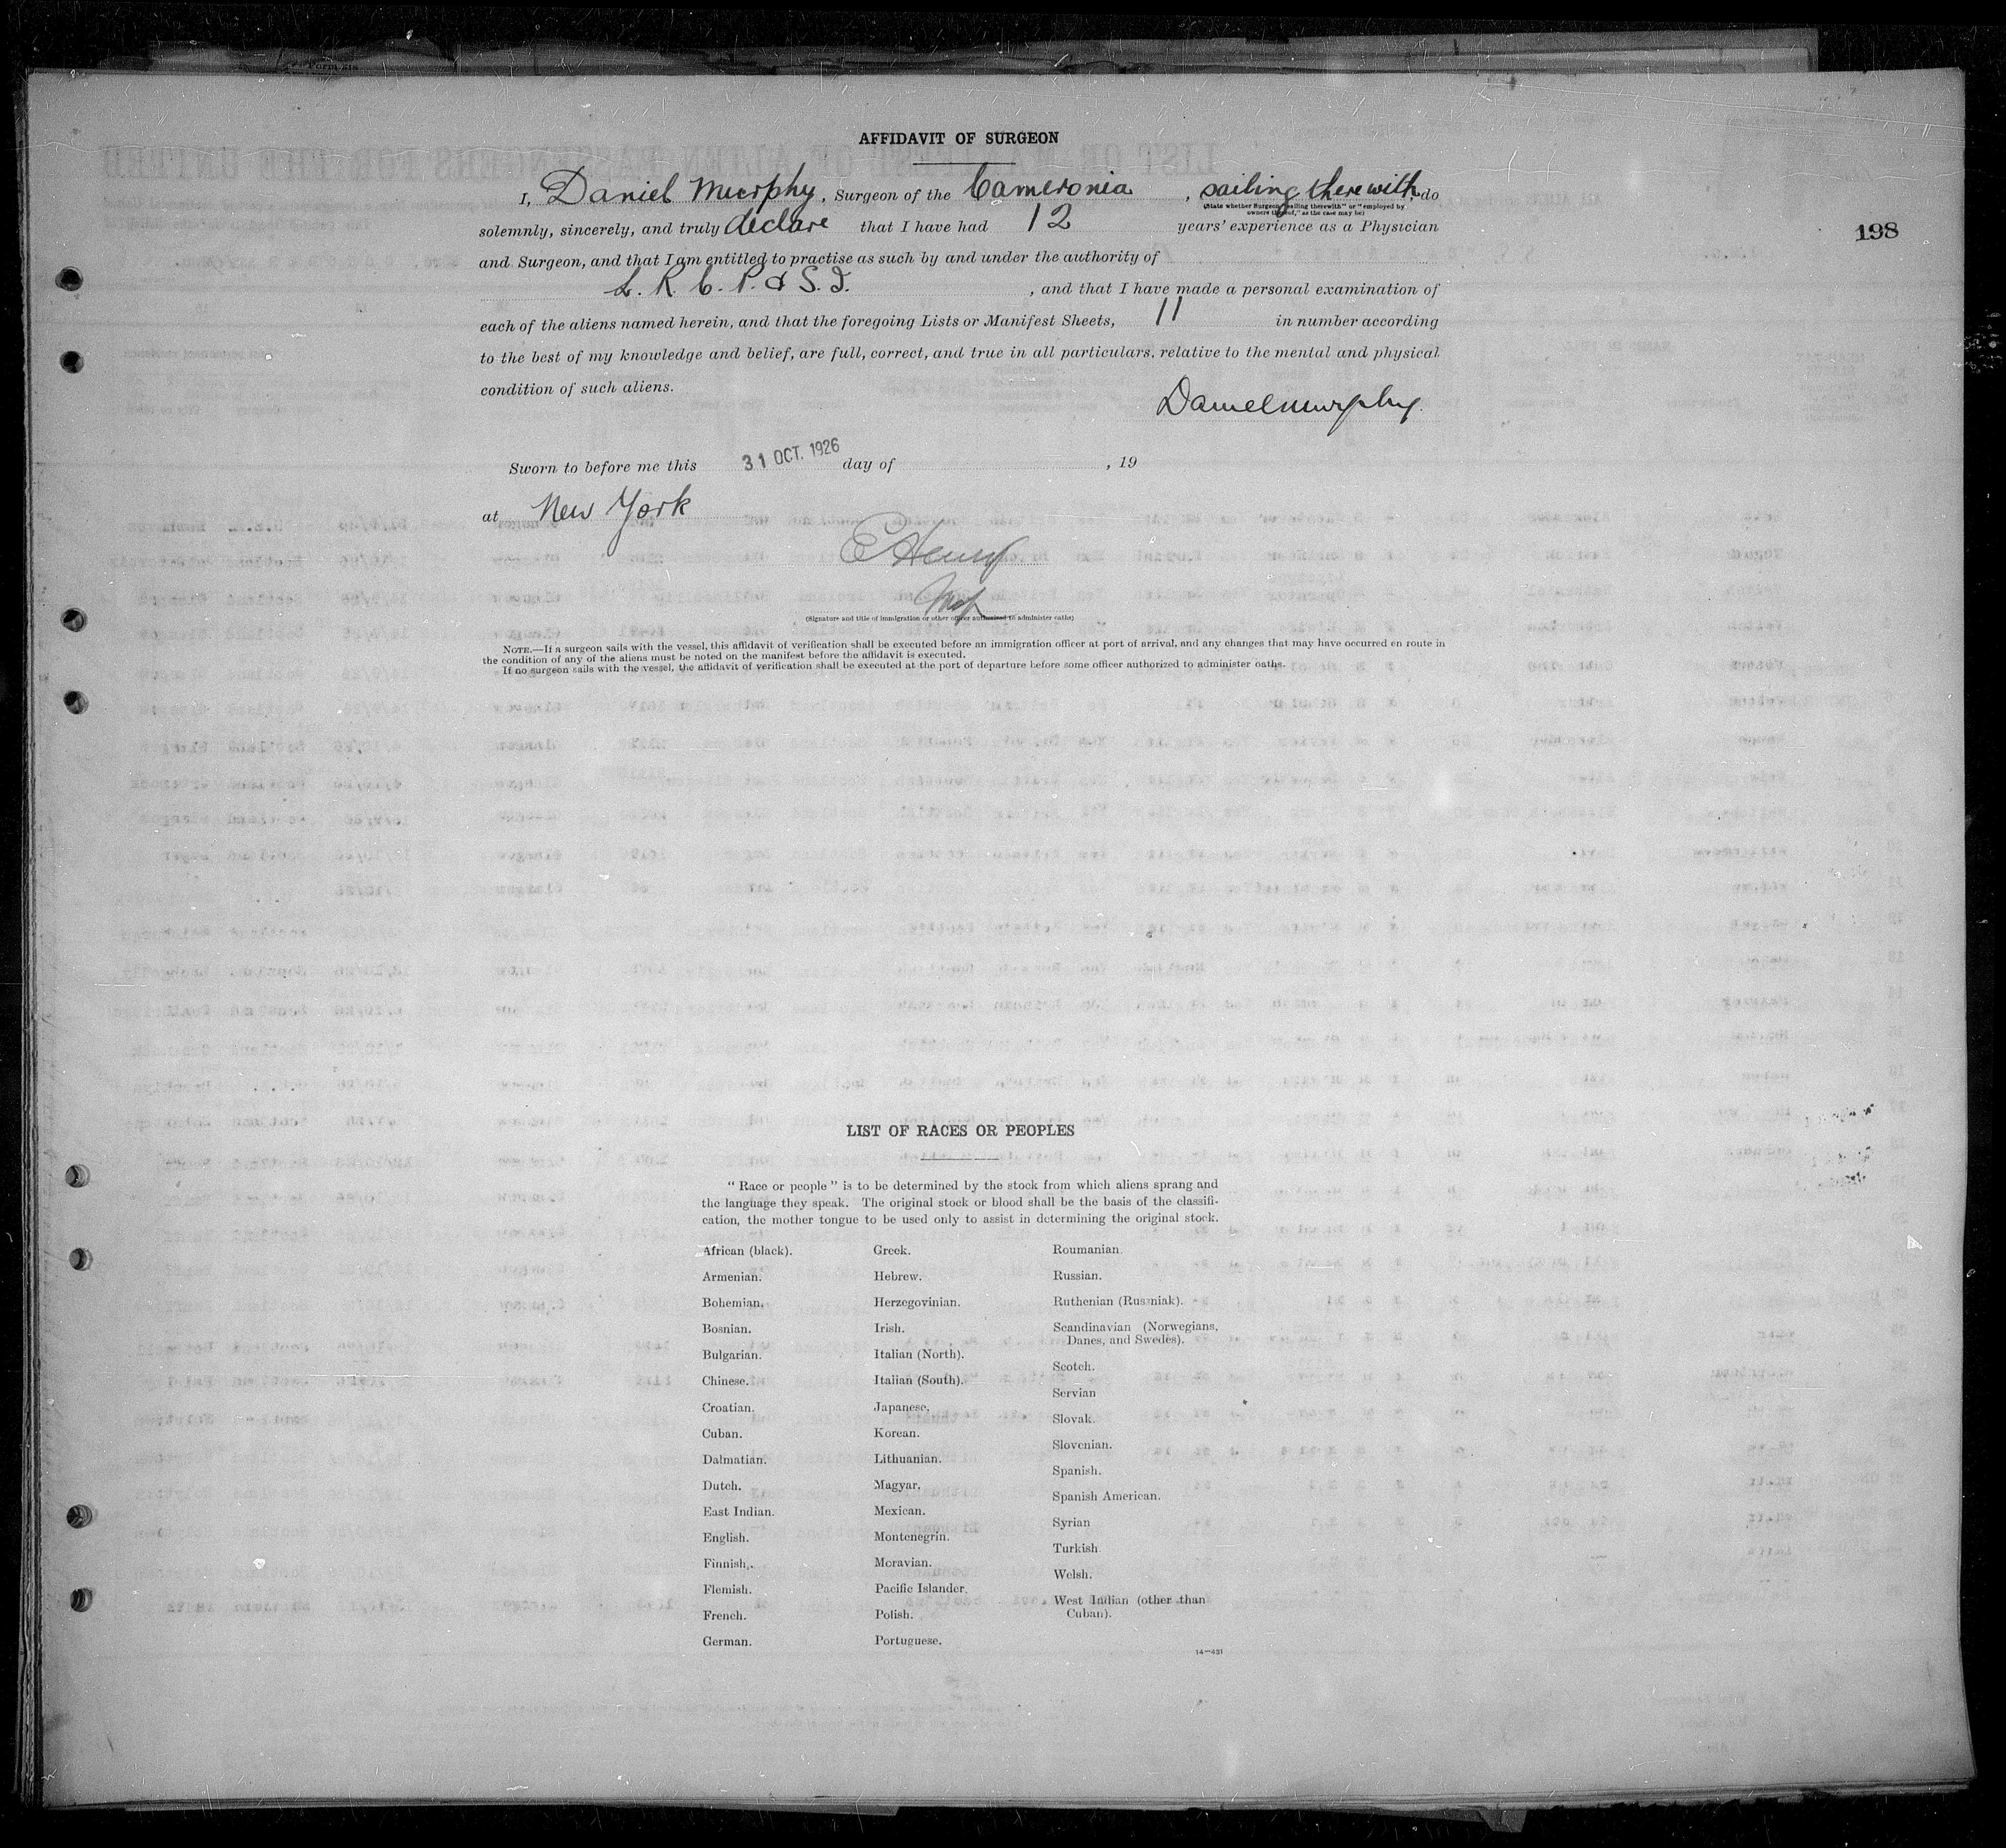 AFFIDAVIT OF SURGEON
I, Daniel Murphy, Surgeon of the Cameronia, sailing therewith, do
(State whether Surgeon "sailing therewith" or "employed by
owners thereof," as the case may be)
198
solemnly, sincerely, and truly declare that I have had 12 years' experience as a Physician
and Surgeon, and that I am entitled to practise as such by and under the authority of
L. R. C. P. & S. I., and that I have made a personal examination of
each of the aliens named herein, and that the foregoing Lists or Manifest Sheets, 11 in number according
to the best of my knowledge and belief, are full, correct, and true in all particulars, relative to the mental and physical
condition of such aliens.
Daniel Murphy.
Sworn to before me this 31 OCT. 1926 day of , 19
at New York
Insp
(Signature and title of immigration or other officer authorized to administer oaths)
NOTE.—If a surgeon sails with the vessel, this affidavit of verification shall be executed before an immigration officer at port of arrival, and any changes that may have occurred en route in
the condition of any of the aliens must be noted on the manifest before the affidavit is executed.
If no surgeon sails with the vessel, the affidavit of verification shall be executed at the port of departure before some officer authorized to administer oaths.
LIST OF RACES OR PEOPLES
"Race or people" is to be determined by the stock from which aliens sprang and
the language they speak. The original stock or blood shall be the basis of the classifi-
cation, the mother tongue to be used only to assist in determining the original stock.
African (black).
Armenian.
Bohemian.
Bosnian.
Bulgarian.
Chinese.
Croatian.
Cuban.
Dalmatian.
Dutch.
East Indian.
English.
Finnish.
Flemish.
French.
German.
Greek.
Hebrew.
Herzegovinian.
Irish.
Italian (North).
Italian (South).
Japanese.
Korean.
Lithuanian.
Magyar.
Mexican.
Montenegrin.
Moravian.
Pacific Islander.
Polish.
Portuguese.
Roumanian.
Russian.
Ruthenian (Russniak).
Scandinavian (Norwegians,
Danes, and Swedes).
Scotch.
Servian
Slovak.
Slovenian.
Spanish.
Spanish American.
Syrian
Turkish
Welsh.
West Indian (other than
Cuban).
14—431